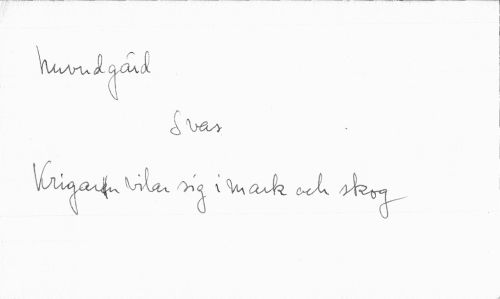 huvudgård
Svas
Krigaren vilar sig i mark och skog